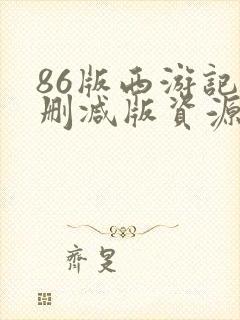 86版西游記
删减版資源
齊旻